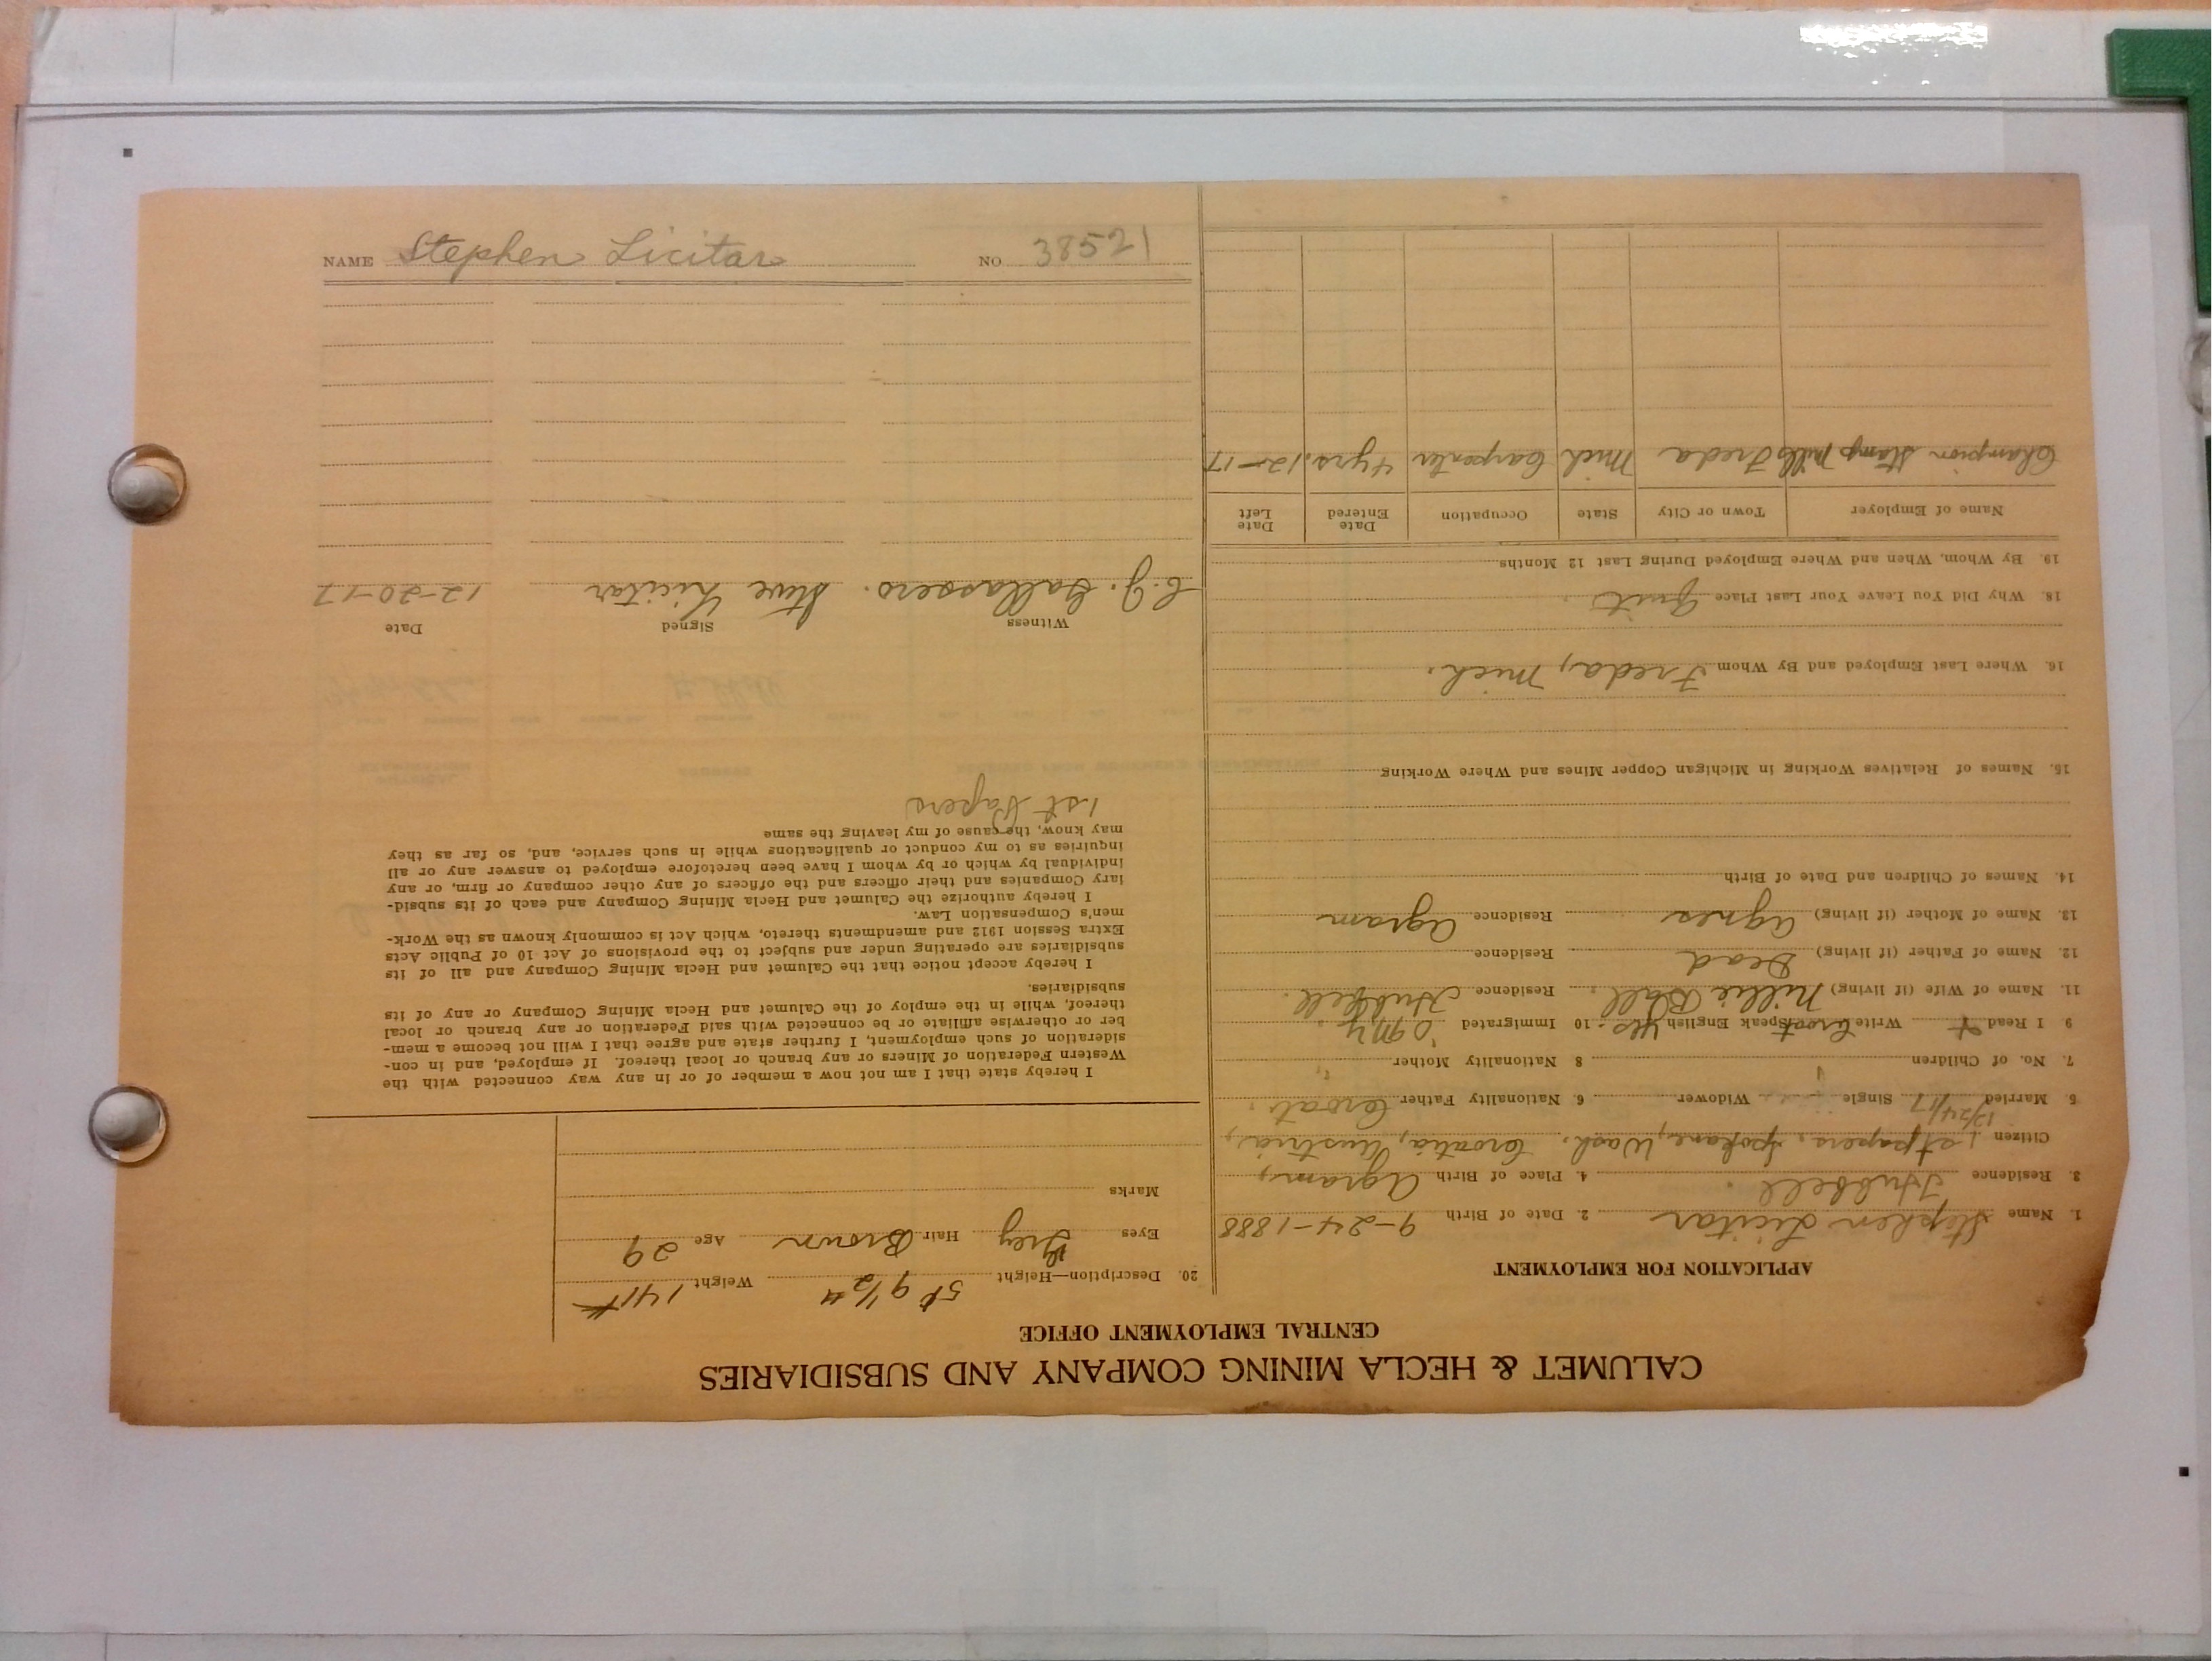 CALUMET & HECLA MINING COMPANY AND SUBSIDIARIES
CENTRAL EMPLOYMENT OFFICE
APPLICATION FOR EMPLOYMENT
1. Name Stephen Licitar 2. Date of Birth 9-24-1888
3. Residence Hubbell. 4. Place of Birth Agram,
Citizen 1st papers, Spokane, Wash. Croatia, Austria,
5. Married 12/24/17 Single Widower 6. Nationality Father Croat.
7. No. of Children 8 Nationality Mother "
9 I Read + Write Croat Speak English Yes. 10 Immigrated
11. Name of Wife (if living) Nillie Ball. Residence Hubbell.
12. Name of Father (if living) Dead Residence
13. Name of Mother (if living) Agnes Residence Agram
14. Names of Children and Date of Birth
15. Names of Relatives Working in Michigan Copper Mines and Where Working
16. Where Last Employed and By Whom Freda, Mich.
18. Why Did You Leave Your Last Place Quit
19. By Whom, When and Where Employed During Last 12 Months
Name of Employer Town or City State Occupation Date Entered Date Left
Champion Stamp Mills Freda Mich Carpenter 4 yrs. 12-17
20. Description—Height 5ft 9 1/2" Weight 141#
Eyes Grey Hair Brown Age 29
Marks
I hereby state that I am not now a member of or in any way connected with the
Western Federation of Miners or any branch or local thereof. If employed, and in con-
sideration of such employment, I further state and agree that I will not become a mem-
ber or otherwise affiliate or be connected with said Federation or any branch or local
thereof, while in the employ of the Calumet and Hecla Mining Company or any of its
subsidiaries.
I hereby accept notice that the Calumet and Hecla Mining Company and all of its
subsidiaries are operating under and subject to the provisions of Act 10 of Public Acts
Extra Session 1912 and amendments thereto, which Act is commonly known as the Work-
men's Compensation Law.
I hereby authorize the Calumet and Hecla Mining Company and each of its subsid-
iary Companies and their officers and the officers of any other company or firm, or any
individual by which or by whom I have been heretofore employed to answer any or all
inquiries as to my conduct or qualifications while in such service, and, so far as they
may know, the cause of my leaving the same
1st Papers
Witness Signed Date
C.J. Gallassero. Steve Licitar 12-20-17
NAME Stephen Licitar NO 38521